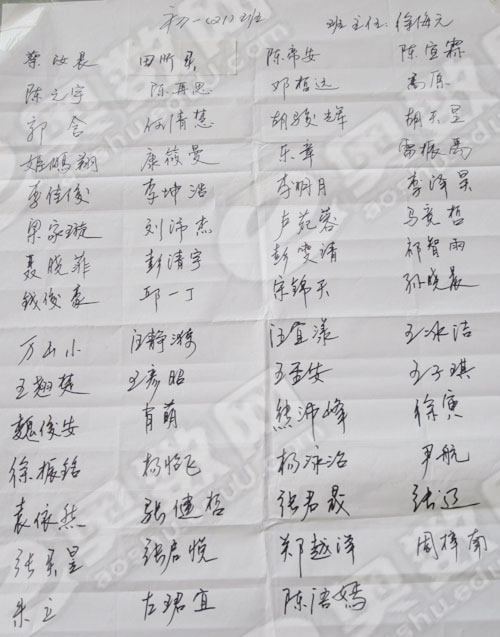 初一(四)班 班主任:徐海元
蔡汝晨 田昕昱 陈希安 陈宣霖
陈元宇 陈再思 邓植远 高原
郭含 何清慧 胡骏辉 胡天昱
姬鹏翔 康筱曼 乐章 雷振禹
李佳俊 李坤浩 李明月 李泽昊
梁家璇 刘沛杰 卢苑蓉 马奕哲
聂晓菲 彭清宇 彭雯清 祁智雨
钱俊豪 邱一丁 宋锦天 孙晓晨
万山小 汪静漪 汪宜漾 王冰洁
王翘楚 王彦昭 王孟安 王子琪
魏俊安 肖萌 熊沛峰 徐寅
徐振铭 杨怡飞 杨泳洺 尹航
袁依然 张健哲 张君晟 张迅
张昊星 张启悦 郑越泽 周梓南
朱立 左珺宜 陈语嫣
奥数网
aoshu.eduu.com